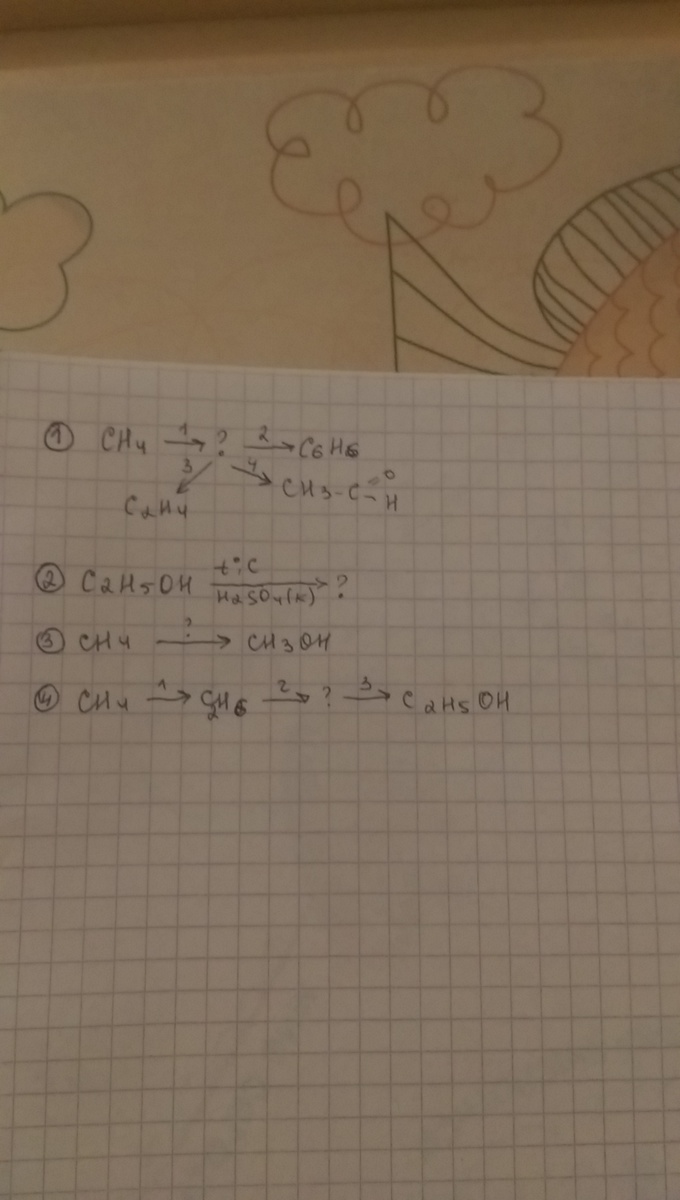 ① CH4 —1→ ? —2→ C6H6
3↙ 4↘
C2H4 CH3-C=O
-H
② C2H5OH —t°,C / H2SO4(к)→ ?
③ CH4 —?→ CH3OH
④ CH4 —1→ C2H6 —2→ ? —3→ C2H5OH